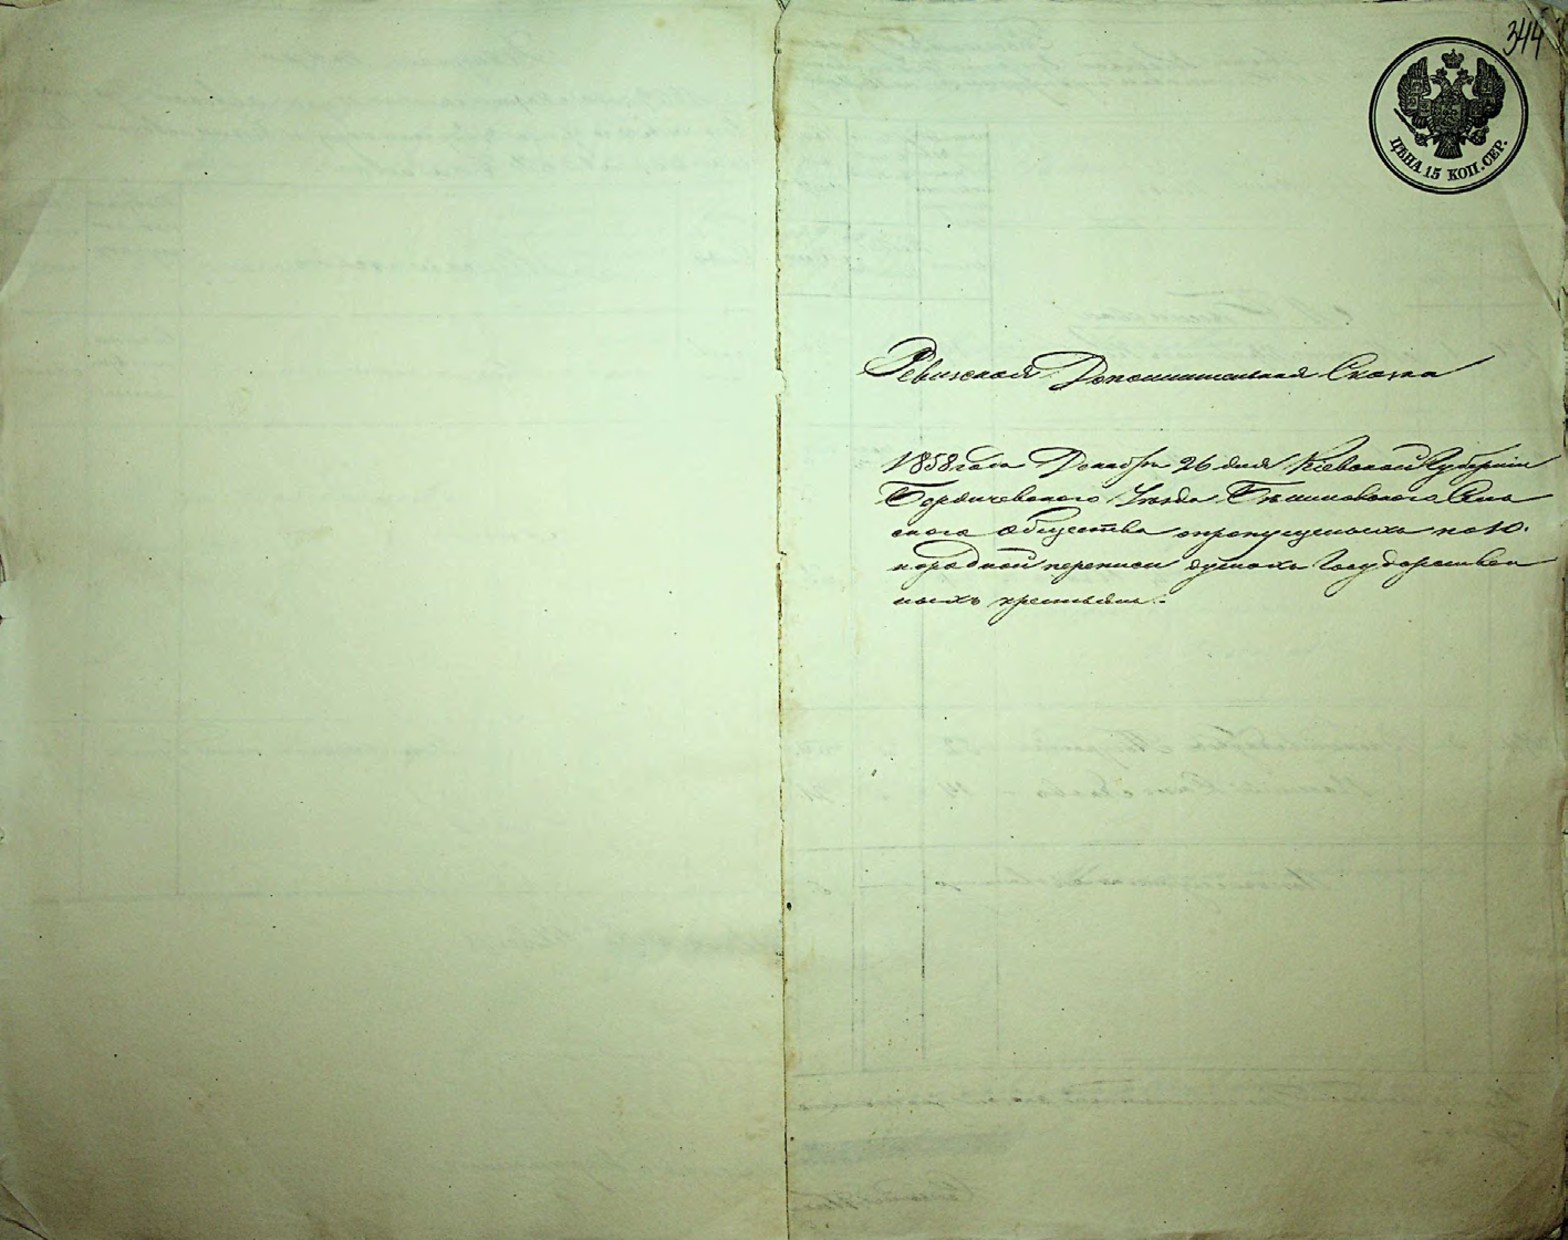 344
ЦѢНА 15 КОП. СЕР.
Ревизская Дополнительная Сказка
1858 года Декабря 26 дня Кіевской Губерніи
Бердичевскаго Уѣзда Сель
скаго общества о пропущенныхъ по 10.
народной переписи душахъ Государствен
ныхъ крестьянъ.